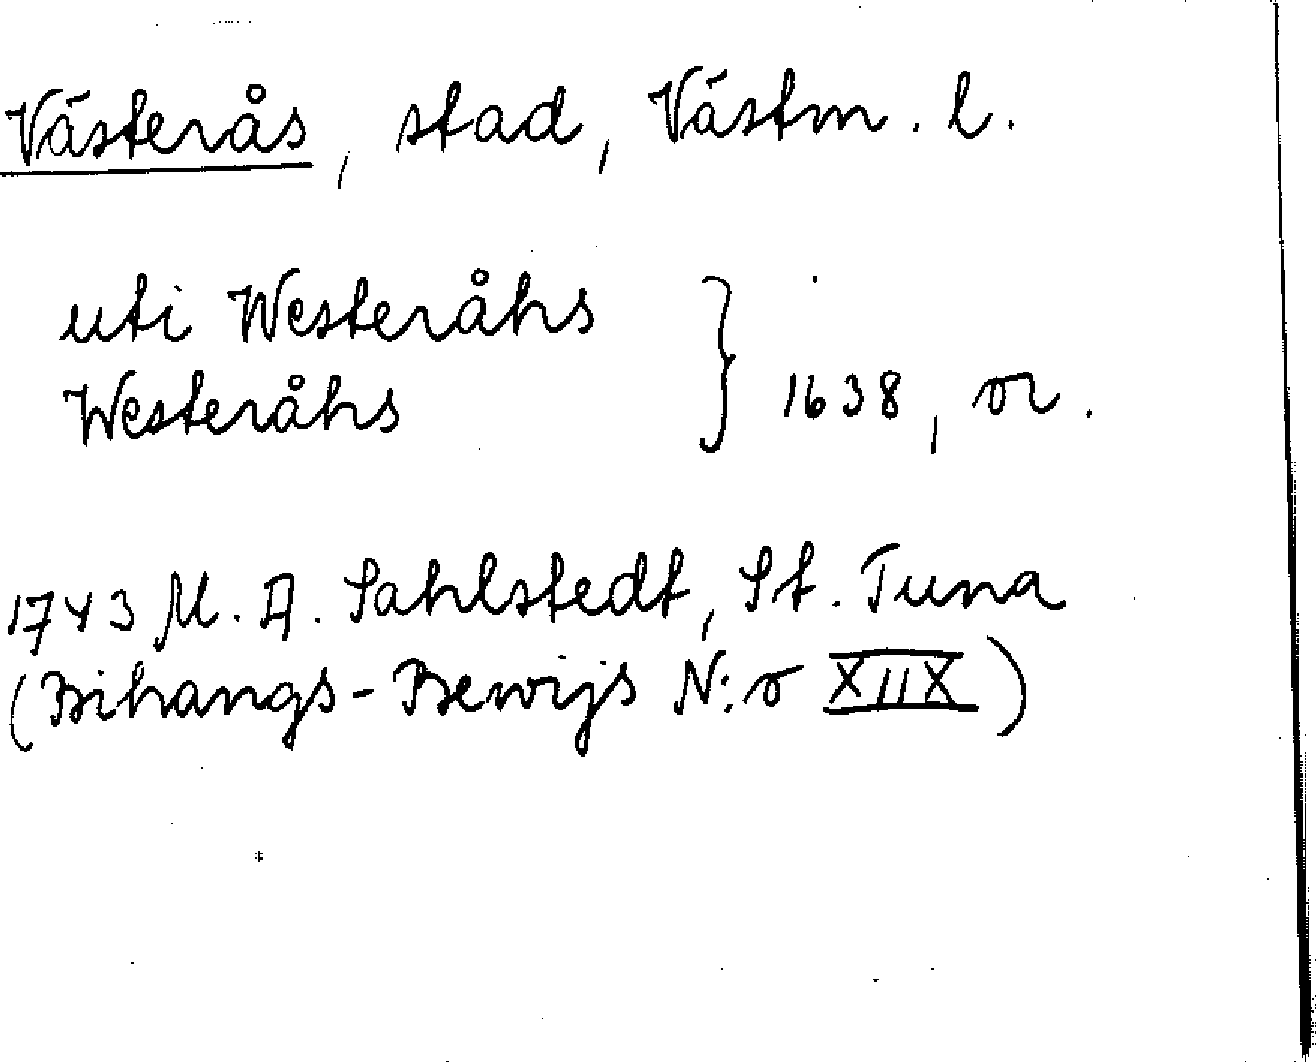 Västerås, stad, Västm. l.
uti Westeråhs
Westeråhs } 1638, or.
1743 M. A. Sahlstedt, St. Tuna
(Bihangs-Bewijs N:o XIIX)